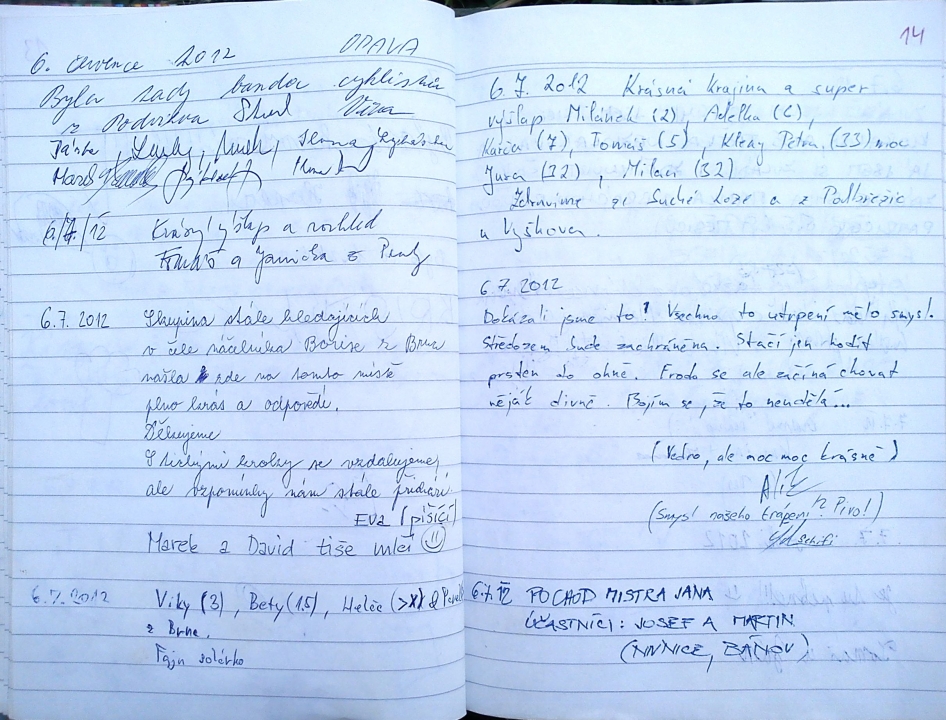 6. července 2012 OPAVA
Byla zady banda cyklistů
z
Marek
6/7/12 Krásný výšlap a rozhled
Tomáš a Janička z Prahy
6.7.2012 Skupina stále hledajících
v čele náčelníka Borise z Brna
našla zde na tomto místě
plno krás a odpovědí.
Děkujeme
S tichými kroky se vzdalujeme,
ale vzpomínky nám stále přichází.
Eva (píšící)
Marek a David tiše mlčí
6.7.2012 Viky (3), Bety (1,5), Helče (>X) &
z Brna.
Fajn
14
6.7.2012 Krásná krajina a super
výšlap Milánek (2), Adélka (6),
Kačča (7), Tomáš (5), Petra (33) moc
Jura (32), Milaci (32)
Zdravíme ze Suché Loze a z Podbřežic
a Vyškova.
6.7.2012
Dokázali jsme to! Všechno to utrpení mělo smysl.
Středozem bude zachráněna. Stačí jen hodit
prsten do ohně. Frodo se ale začíná chovat
nějak divně. Bojím se, že to neudělá...
(Vedro, ale moc moc krásné)
(Smysl našeho trápení? Pivo!)
6.7.12 POCHOD MISTRA JANA
ÚČASTNÍCI: JOSEF A MARTIN
(NIVNICE, BÁNOV)